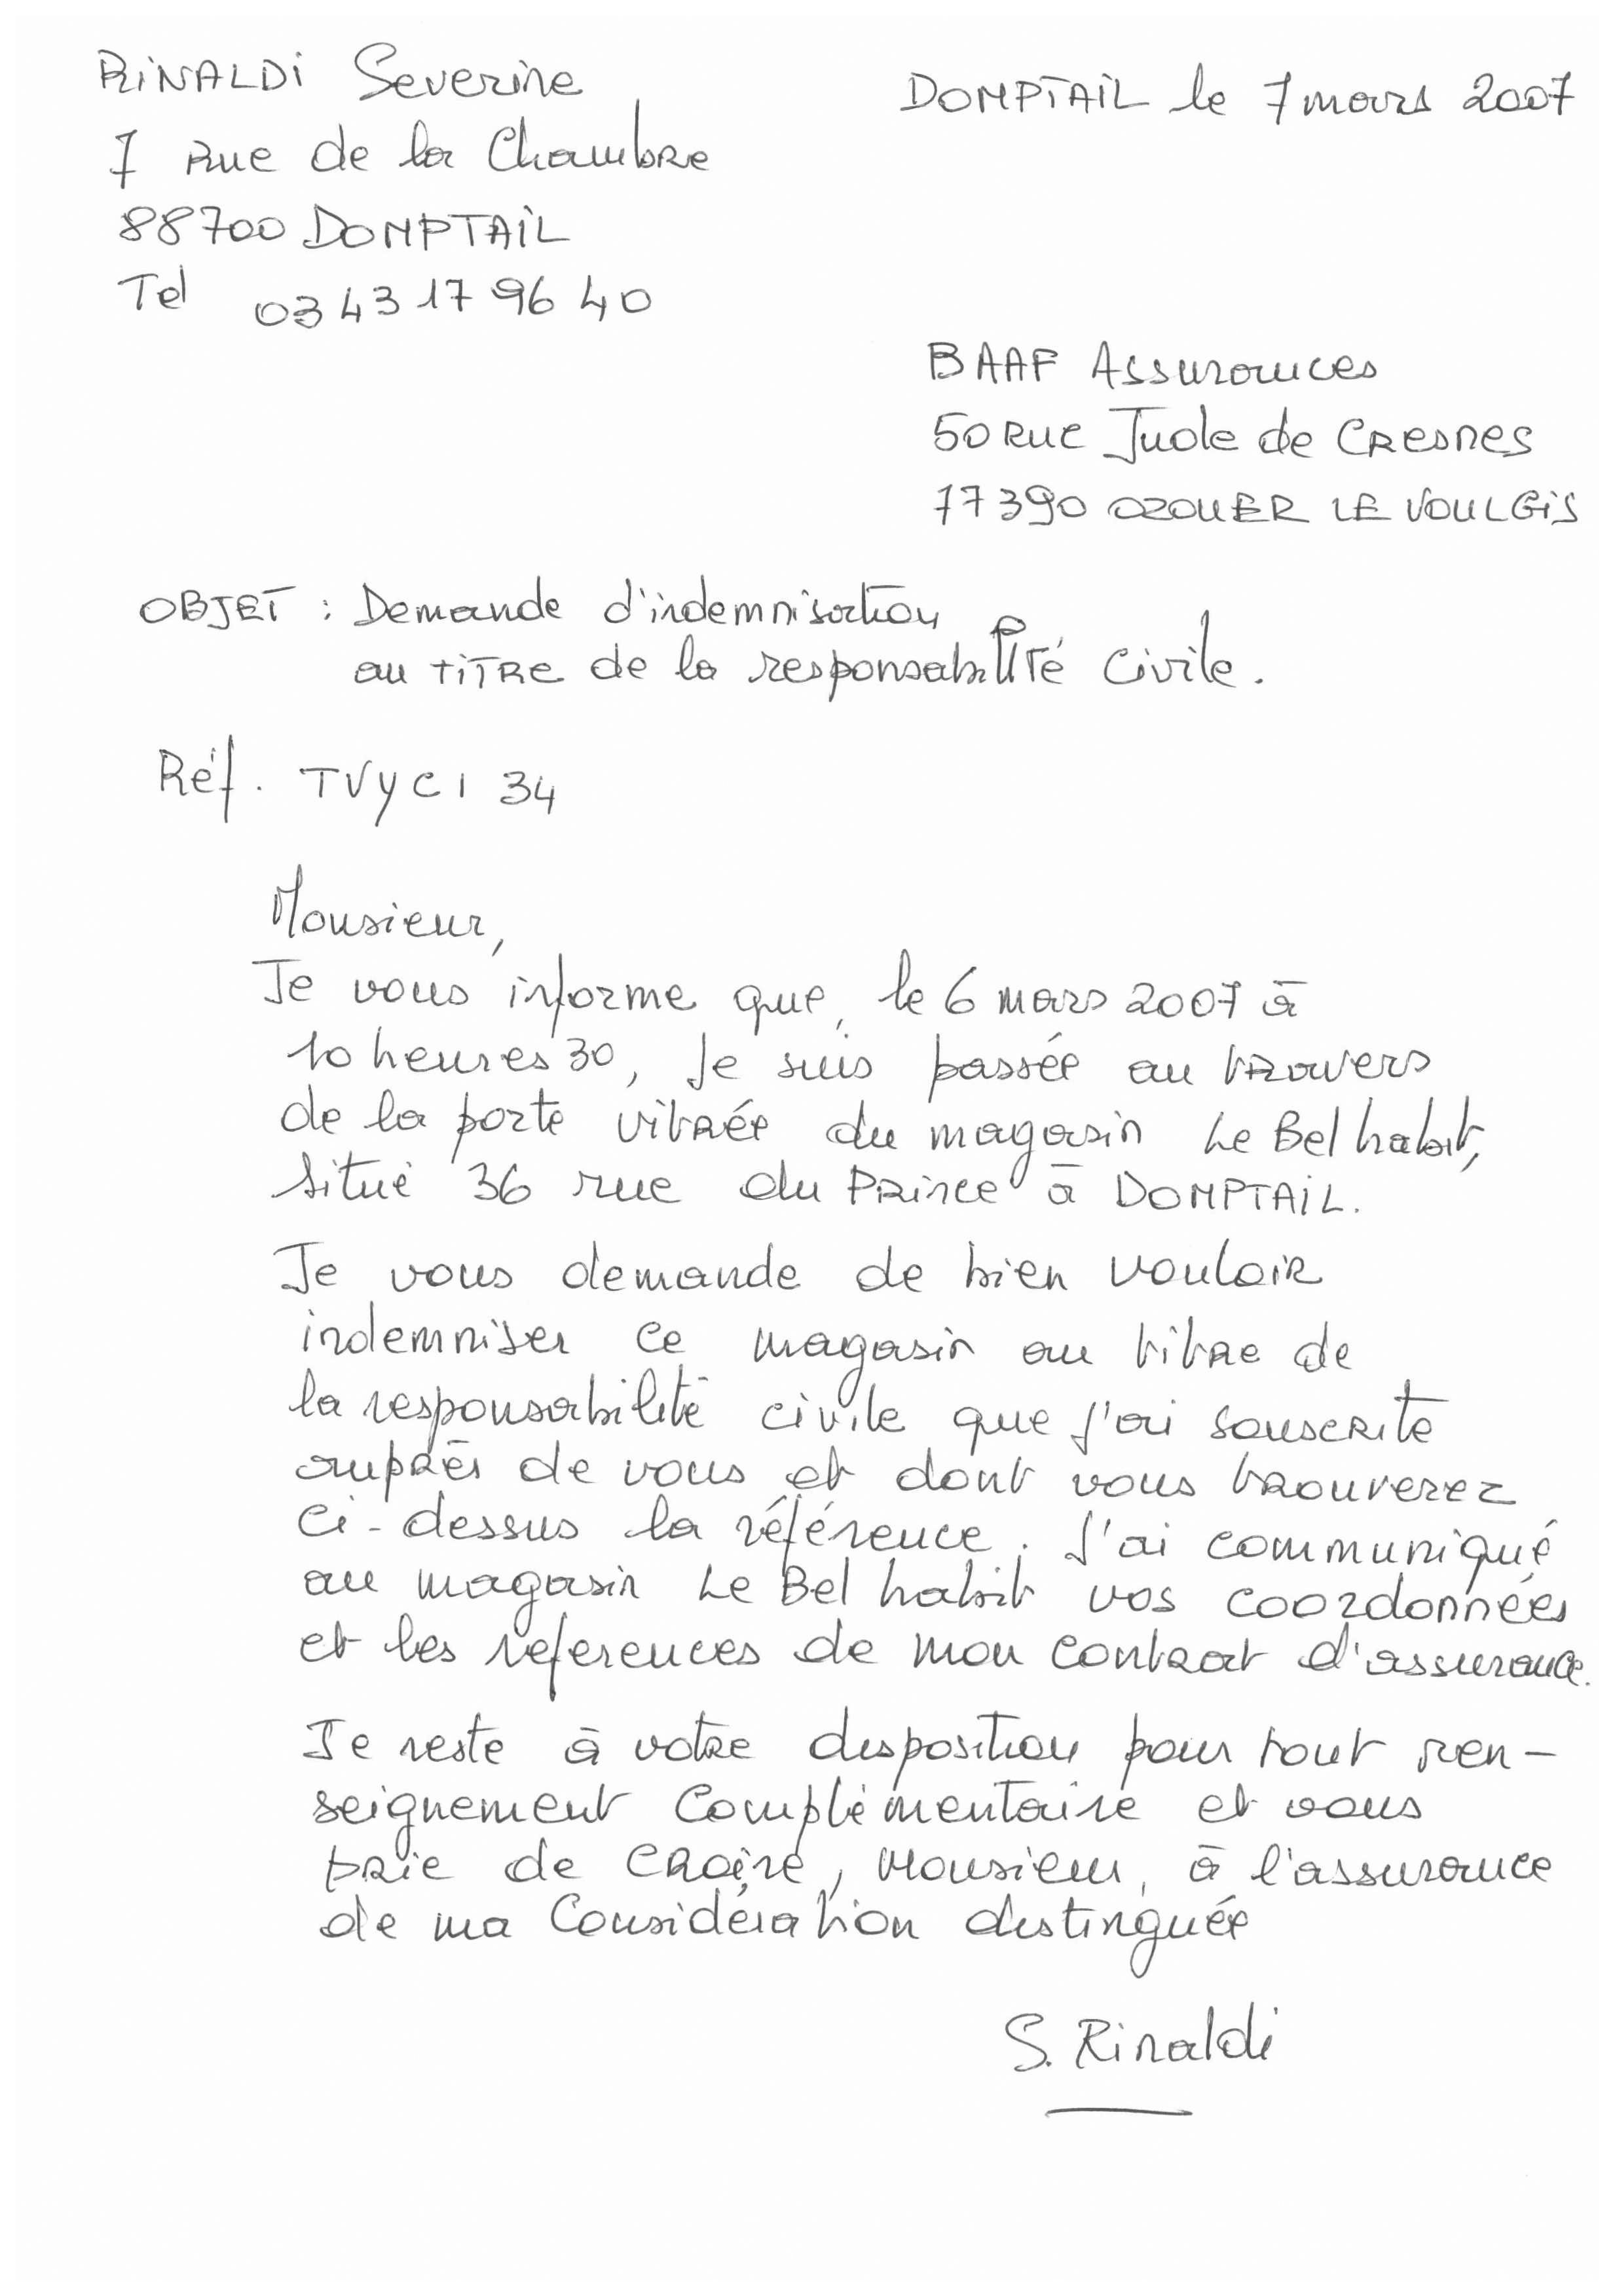 RINALDI Severine
7 Rue de la Chambre
88700 DOMPTAIL
Tel 03 43 17 96 40
DOMPTAIL le 7 mars 2007
BAAF Assurances
50 Rue Jude de Cresnes
77390 OZOUER LE VOULGIS
OBJET : Demande d'indemnisation
au TITRE de la responsabilité Civile.
Réf. TVYCI 34
Monsieur,
Je vous informe que, le 6 mars 2007 à
10 heures 30, Je suis passée au travers
de la porte vitrée du magasin Le Bel habit,
situé 36 rue du Prince à DOMPTAIL.
Je vous demande de bien vouloir
indemniser ce magasin au titre de
la responsabilité civile que j'ai souscrite
auprès de vous et dont vous trouverez
ci-dessus la référence. J'ai communiqué
au magasin Le Bel habit vos coordonnées
et les references de mon contrat d'assurance.
Je reste à votre disposition pour tout ren-
seignement Complémentaire et vous
prie de croire, Monsieur, à l'assurance
de ma Considération distinguée
S. Rinaldi